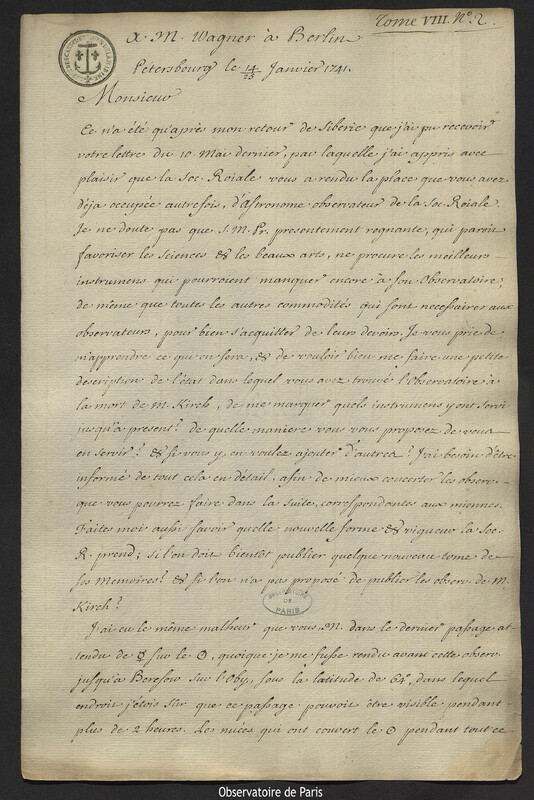 Tome VIII. N.º 2.
A M. Wagner à Berlin
Petersbourg le 14/25 Janvier 1741.
Monsieur
Ce n'a été qu'après mon retour de Siberie que j'ai pu recevoir
votre lettre du 10 Mai dernier, par laquelle j'ai appris avec
plaisir que la Soc. Roiale vous a rendu la place que vous avez
déja occupée autrefois, d'Astronome observateur de la Soc. Roiale.
Je ne doute pas que S. M. Pr. presentement regnante, qui paroit
favoriser les Sciences & les beaux arts, ne procure les meilleurs
instrumens qui pourroient manquer encore à son Observatoire;
de même que toutes les autres commodités qui sont necessaires aux
observateurs, pour bien s'acquiller de leurs devoirs. Je vous prie de
m'apprendre ce qui en sera, & de vouloir bien me faire une petite
description de l'état dans lequel vous avez trouvé l'Observatoire à
la mort de M. Kirch, de me marquer quels instrumens y ont servi
jusqu'à present? de quelle maniere vous vous proposez de vous
en servir? & si vous y en voulez ajouter d'autres? J'ai besoin d'être
informé de tout cela en détail, afin de mieux concerter les observ.
que vous pourrez faire dans la suite, correspondantes aux miennes.
Faites moi aussi savoir quelle nouvelle forme & vigueur la Soc.
R. prend; si l'on doit bientôt publier quelque nouveau tome de
ses Memoires? & si l'on n'a pas proposé de publier les observ. de M.
Kirch?
OBSERVATOIRE
DE
PARIS
J'ai eu le même malheur que vous, M. dans le dernier passage at
tendu de ☿ sur le ☉, quoique je me fusse rendu avant cette observ.
jusqu'à Beresow sur l'Oby, sous la latitude de 64°, dans lequel
endroit j'etois sûr que ce passage pouvoit être visible pendant
plus de 2 heures. Les nuées qui ont couvert le ☉ pendant tout ce
Observatoire de Paris